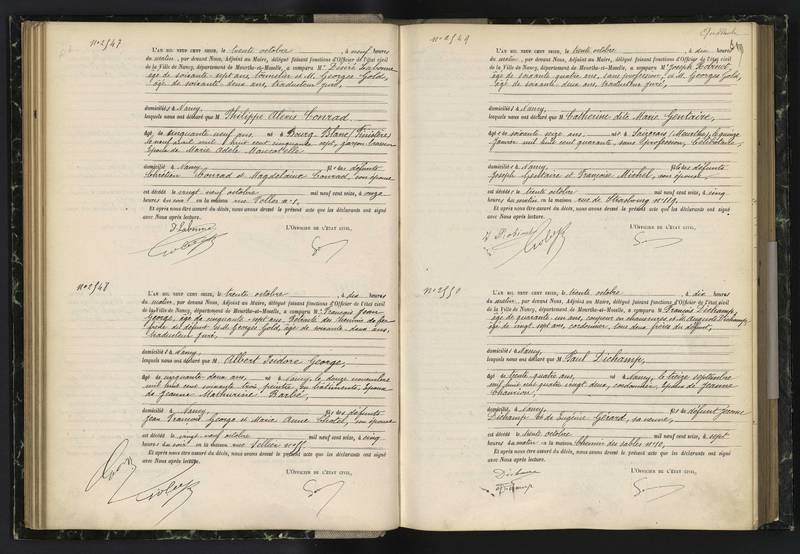 n° 2547
L'AN MIL NEUF CENT SEIZE, le trente octobre, à neuf heures
du matin, par devant Nous, Adjoint au Maire, délégué faisant fonctions d'Officier de l'état civil
de la Ville de Nancy, département de Meurthe-et-Moselle, a comparu M. Désiré
âgé de soixante sept ans, et M. Georges Gold,
âgé de soixante deux ans, traducteur juré,
domiciliés à Nancy,
lesquels nous ont déclaré que M. Philippe Alexis Conrad.
âgé de cinquante neuf ans, né à Bourg-Blanc (Finistère)
le neuf avril mil huit cent cinquante sept, garçon
époux de Marie Adèle
domicilié à Nancy, fils des défunts
Chrétien Conrad et Magdelaine Conrad, son épouse
est décédé le vingt neuf octobre mil neuf cent seize, à onze
heures du soir en la maison rue n° 1,
Et après nous être assuré du décès, nous avons dressé le présent acte que les déclarants ont signé
avec Nous après lecture.
L'OFFICIER DE L'ÉTAT CIVIL,
n° 2548
L'AN MIL NEUF CENT SEIZE, le trente octobre, à dix heures
du matin, par devant Nous, Adjoint au Maire, délégué faisant fonctions d'Officier de l'état civil
de la Ville de Nancy, département de Meurthe-et-Moselle, a comparu M. François Jean
George, âgé de cinquante-sept ans, retraité des chemins de fer
frère du défunt et M. Georges Gold, âgé de soixante-deux ans,
traducteur juré,
domiciliés à Nancy,
lesquels nous ont déclaré que M. Albert Isidore George,
âgé de cinquante deux ans, né à Nancy, le douze novembre
mil huit cent soixante trois, peintre en bâtiments, époux
de Jeanne Mathurine Barbé,
domicilié à Nancy, fils des défunts
Jean François George et Marie Anne son épouse
est décédé le vingt neuf octobre mil neuf cent seize, à cinq
heures du soir en la maison rue
Et après nous être assuré du décès, nous avons dressé le présent acte que les déclarants ont signé
avec Nous après lecture.
L'OFFICIER DE L'ÉTAT CIVIL,
n° 2549
L'AN MIL NEUF CENT SEIZE, le trente octobre, à dix heures
du matin, par devant Nous, Adjoint au Maire, délégué faisant fonctions d'Officier de l'état civil
de la Ville de Nancy, département de Meurthe-et-Moselle, a comparu M. Joseph
âgé de soixante quatre ans, sans profession, et M. Georges Gold,
âgé de soixante deux ans, traducteur juré,
domiciliés à Nancy,
lesquels nous ont déclaré que M Catherine dite Marie Gentaire,
âgée de soixante seize ans, née à Saizerais (Meurthe), le quinze
janvier mil huit cent quarante, sans profession, célibataire,
domiciliée à Nancy, fille des défunts
Joseph Gentaire et Françoise Michel, son épouse,
est décédée le trente octobre mil neuf cent seize, à cinq
heures du matin en la maison rue de Strasbourg n° 119,
Et après nous être assuré du décès, nous avons dressé le présent acte que les déclarants ont signé
avec Nous après lecture.
L'OFFICIER DE L'ÉTAT CIVIL,
n° 2550
L'AN MIL NEUF CENT SEIZE, le trente octobre, à dix heures
du matin, par devant Nous, Adjoint au Maire, délégué faisant fonctions d'Officier de l'état civil
de la Ville de Nancy, département de Meurthe-et-Moselle, a comparu M. François Dichamp,
âgé de quarante-un ans, coupeur en chaussures et M. Auguste Dichamp,
âgé de vingt-sept ans, cordonnier, tous deux frères du défunt,
domiciliés à Nancy,
lesquels nous ont déclaré que M. Paul Dichamp,
âgé de trente quatre ans, né à Nancy, le treize septembre
mil huit cent quatre vingt deux, cordonnier, époux de Jeanne
domicilié à Nancy, fils de défunt
Dichamp et de Eugénie Gérard, sa veuve,
est décédé le trente octobre mil neuf cent seize, à sept
heures du matin en la maison Chemin des Sables n° 10,
Et après nous être assuré du décès, nous avons dressé le présent acte que les déclarants ont signé
avec Nous après lecture.
L'OFFICIER DE L'ÉTAT CIVIL,